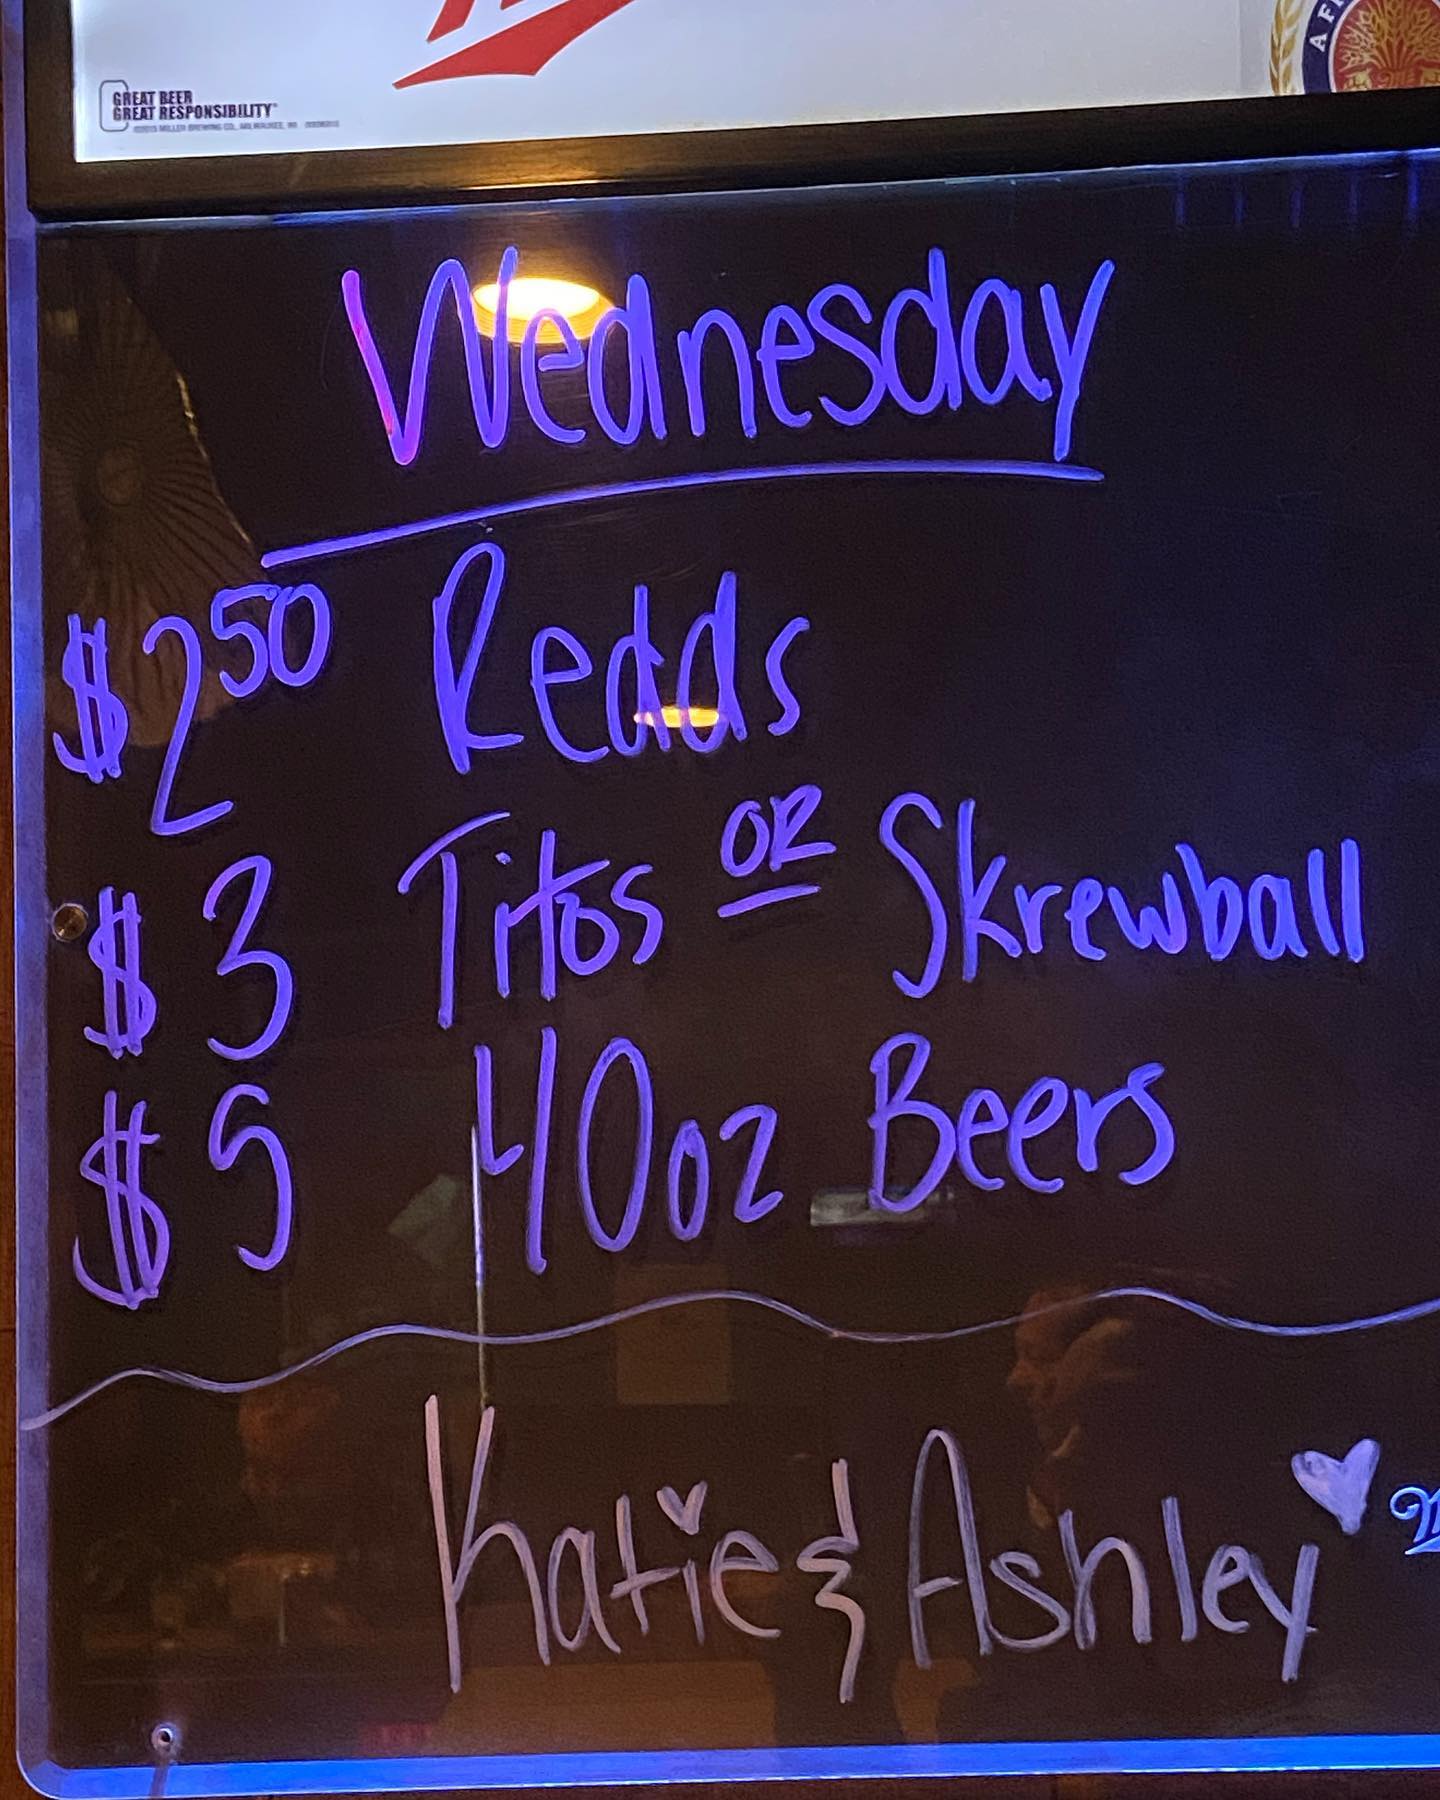 GREAT BEER
GREAT RESPONSIBILITY
Wednesday
$2 50 Redds
$3 Titos OR Skrewball
$5 40oz Beers
Katie & Ashley